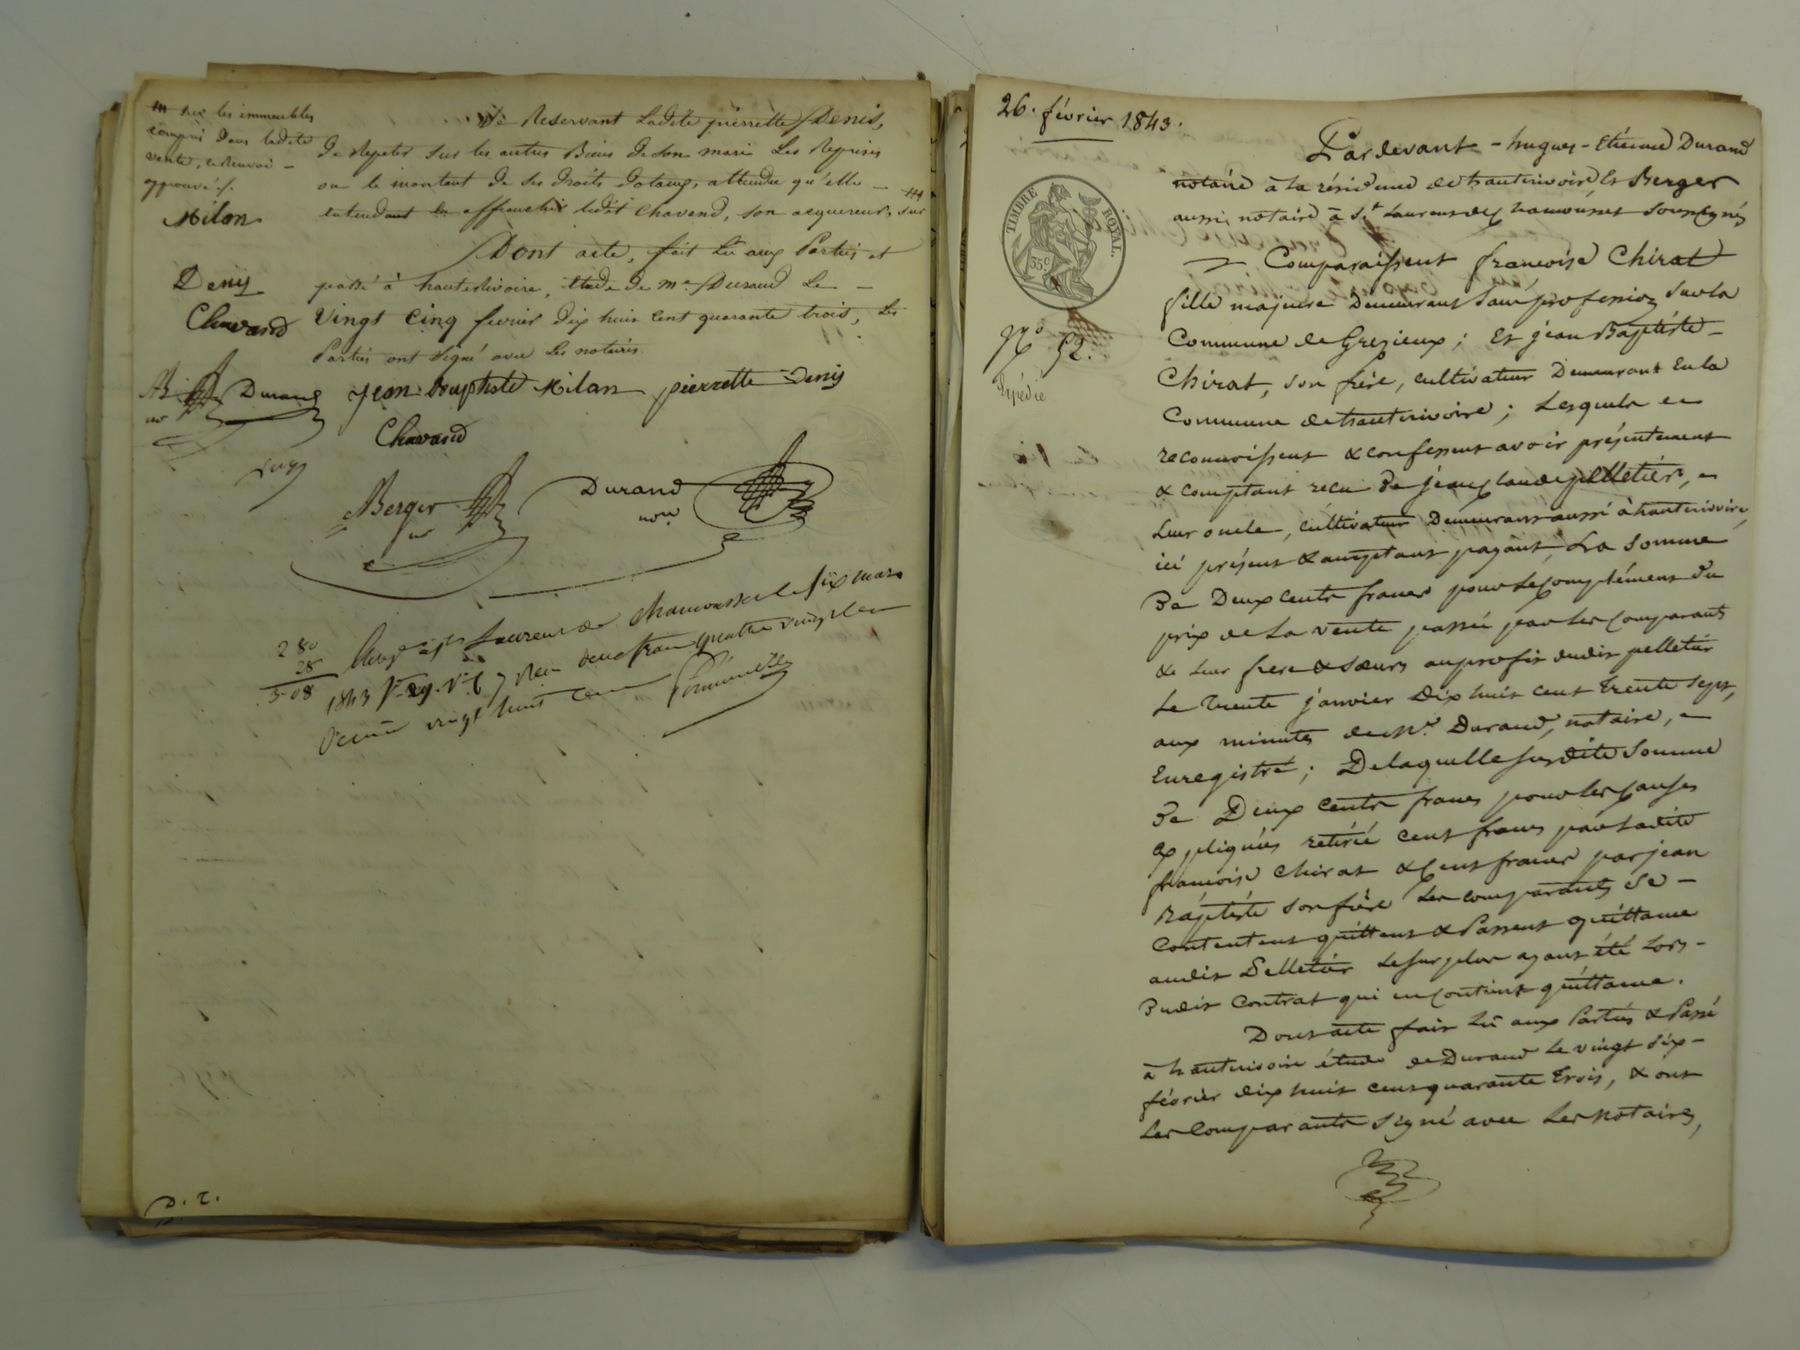 sur les immeubles
compris dans ladite
vente, ce Renvoi -
approuvé ./.
Milan
Denis
Chavand
Se Reservant Ladite pierrette Denis,
de Repeter sur les autres Biens de son mari Les Reprises
ou le montant de ses droits dotaux, attendu qu'elle -
entendant affranchir ledit Chavend, son acquereur, sur
Dont acte, fait Lu aux Parties et
passé à hauterivoire, Etude de me. Durand Le -
Vingt Cinq fevrier dix huit Cent quarante trois, Les
Parties ont signé avec Les notaires
Durand Jean-Baptiste Milan pierrette Denis
Chavand
Berger Durand
nre
nore
280
28
3-08
St Laurent de Chamousset le six mars
1843 Reçu deux francs quatre vingt
Decime vingt huit Cent
D. r.
26. février 1843.
TIMBRE ROYAL.
35c
No 52.
Expédié
Pardevant - hugues - Etienne Durand
notaire à la résidence de hauterivoire, & Berger
aussi notaire à St. Laurent de Chamousset soussignés
Comparaissent francoise Chirat
fille majeure Demeurant sans profession sur la
Commune de Grezieux ; Et jean Baptiste -
Chirat, son frère, cultivateur Demeurant En la
Commune de hauterivoire ; Lesquels -
reconnoissent & confessent avoir présentement
& comptant recu de jean Claude pelletier, -
Leur oncle, cultivateur Demeurant aussi à hauterivoire,
ici présent & acceptant payant, La somme
De Deux cents francs pour le Complément du
prix de La vente passée par les Comparants
& Leur frere & sœurs au profit dudit pelletier
Le trente janvier Dix huit cent trente sept,
aux minutes de Me. Durand, notaire, -
Enregistré ; De laquelle susdite Somme
De Deux cents francs pour les causes
Expliquées retirée cent francs par ladite
francoise Chirat & Cent francs par jean
Baptiste son frère Les comparants Se -
Contentent quittent & Passent quittance
audit Pelletier Le surplus ayant été Lors -
Dudit Contrat qui en Contient quittance.
Dont acte fait Lu aux Parties & Passé
à hauterivoire étude de Durand Le vingt six -
février dix huit cent quarante trois, & ont
Les Comparants Signé avec Les Notaires,